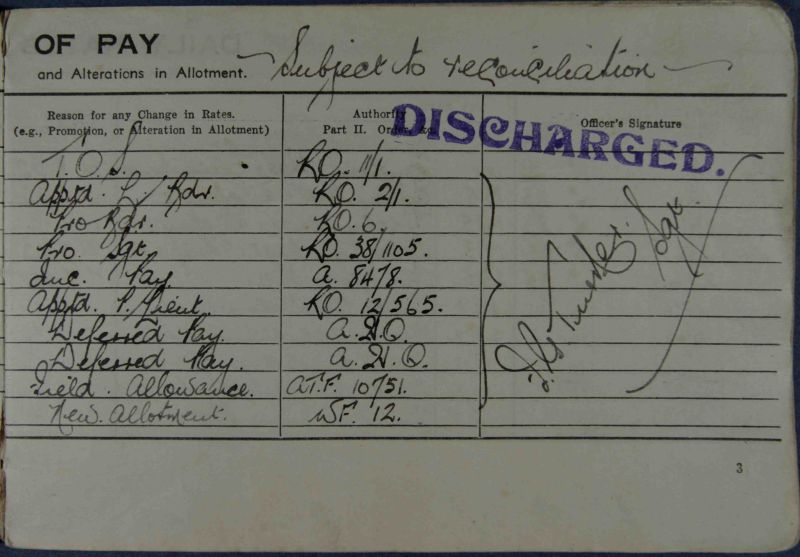 OF PAY
and Alterations in Allotment. Subject to reconciliation
Reason for any Change in Rates. Authority Officer's Signature
(e.g., Promotion, or Alteration in Allotment) Part II. Order, &c.
DISCHARGED.
T.O.S. RO. 11/1.
Apptd. L. Bdr. RO. 2/1.
Pro Bdr. RO. 6.
Pro. Sgt RO. 38/1105.
Inc. Pay. A. 8478.
Apptd. P/Lieut. RO. 12/565.
Deferred Pay. A.H.Q.
Deferred Pay. A.H.Q.
Field. Allowance. A.T.F. 10751.
New. Allotment. WF. 12.
Sgt.
3